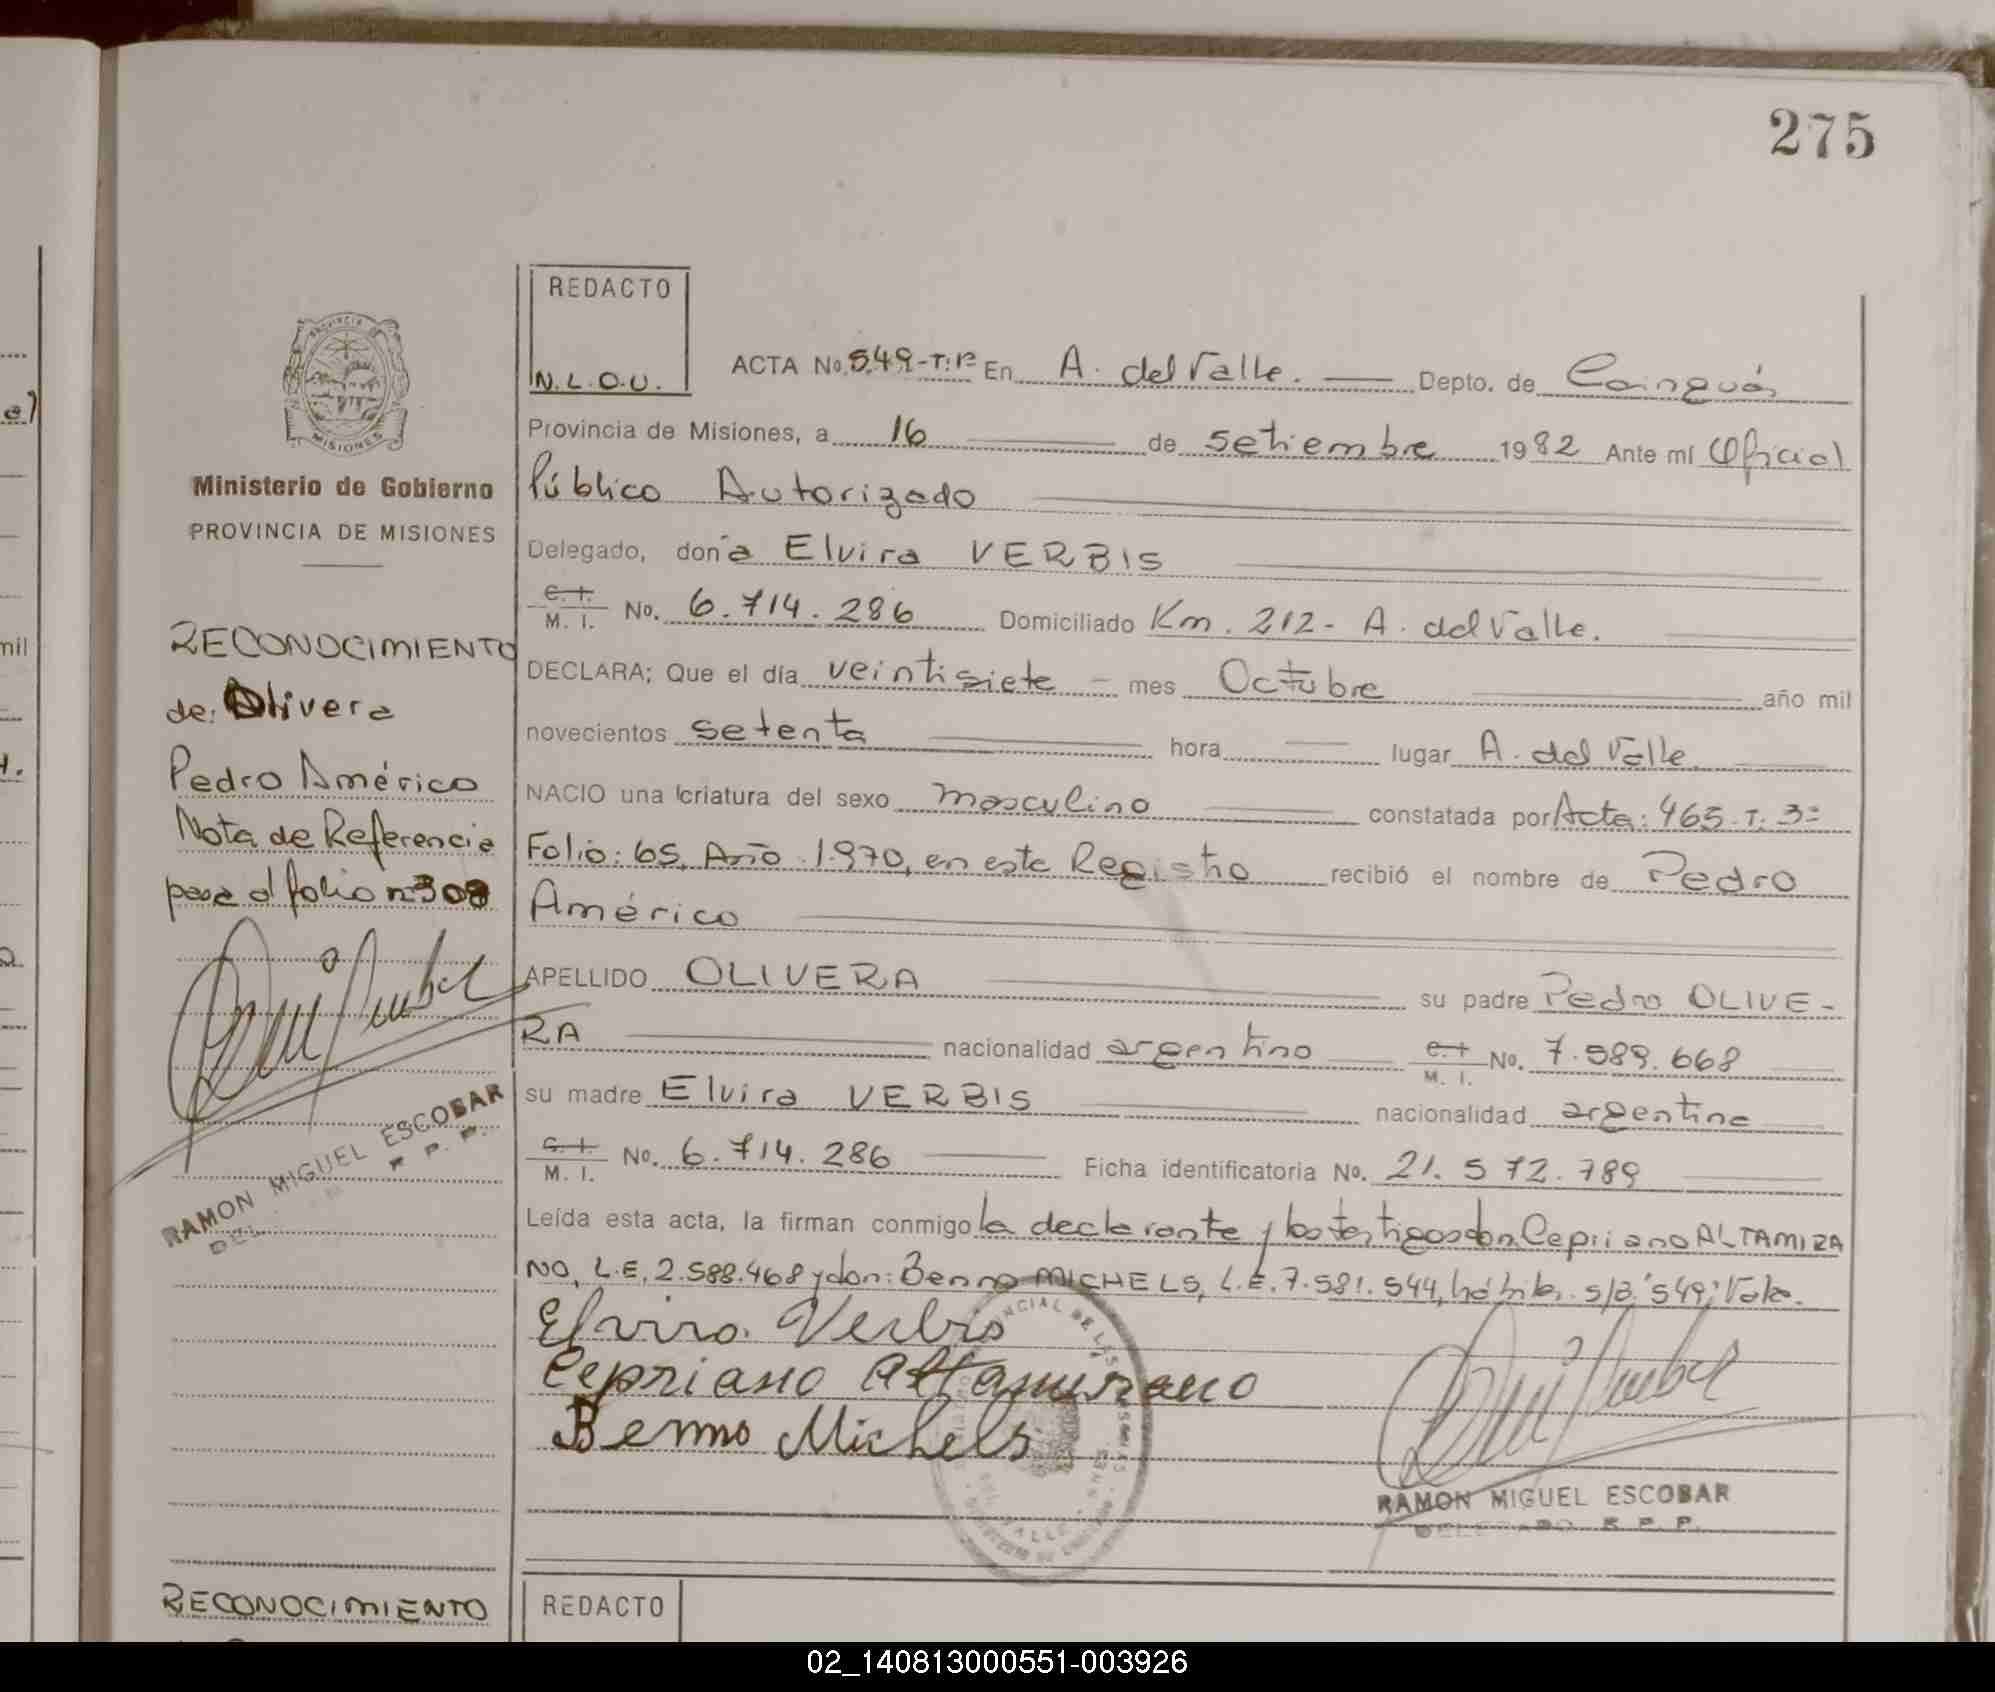 275
REDACTO
N.L.O.U.
ACTA No. 549-T:1º En A. del Valle. Depto. de Cainguás
Provincia de Misiones, a 16 de setiembre 1982 Ante mí Oficial
Público Autorizado
Delegado, doña Elvira VERBIS
C. I.
M. I. No. 6.714.286 Domiciliado Km. 212- A. del Valle.
DECLARA; Que el día veintisiete - mes Octubre año mil
novecientos setenta hora lugar A. del Valle.
NACIO una criatura del sexo masculino constatada por Acta: 465. T. 3º
Folio: 65, Año 1.970, en este Registro recibió el nombre de Pedro
Américo
APELLIDO OLIVERA su padre Pedro OLIVE-
RA nacionalidad argentino C. I. M. I. No. 7.589.668
su madre Elvira VERBIS nacionalidad argentina
C. I.
M. I. No. 6.714.286 Ficha identificatoria No. 21.572.789
Leída esta acta, la firman conmigo la declarante y los testigos don Cepriano ALTAMIRA
NO, L.E. 2.588.468 y don: Benno MICHELS, L.E. 7.581.544, hábiles. s/b. '549,' Vale.
Elvira Verbis
Cepriano Altamirano
Benno Michels
RAMON MIGUEL ESCOBAR
DELEGADO R. P. P.
PROVINCIA DE
MISIONES
Ministerio de Gobierno
PROVINCIA DE MISIONES
RECONOCIMIENTO
de: Olivera
Pedro Américo
Nota de Referencia
pasa al folio nº 308
RAMON MIGUEL ESCOBAR
DEL R. P. P.
RECONOCIMIENTO
REDACTO
02_140813000551-003926